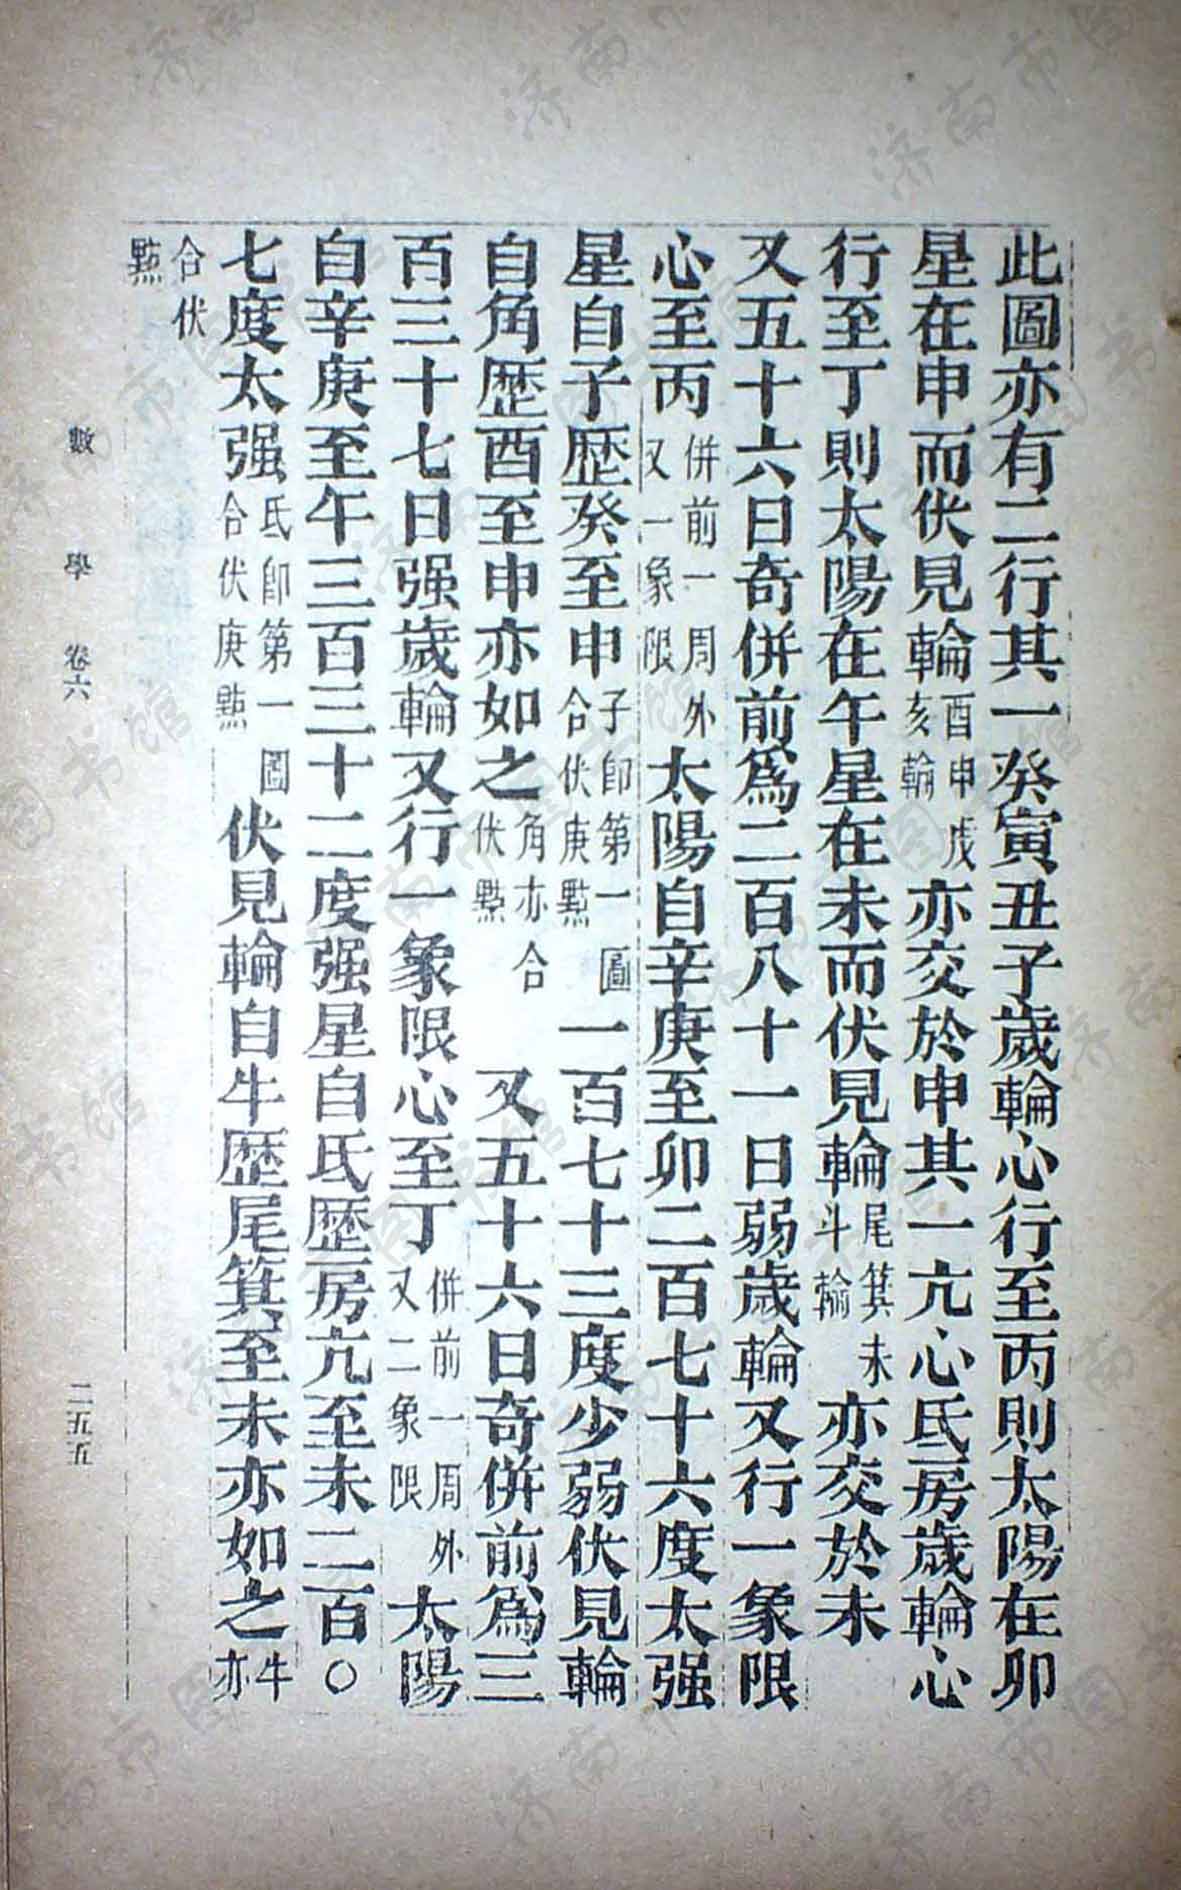 此圖亦有二行其一癸寅丑子歲輪心行至丙則太陽在卯
星在申而伏見輪酉申戌亥輪亦交於申其一亢心氐房歲輪心
行至丁則太陽在午星在未而伏見輪尾箕未斗輪亦交於未
又五十六日奇併前爲二百八十一日弱歲輪又行一象限
心至丙併前一周外又一象限太陽自辛庚至卯二百七十六度太强
星自子歷癸至申子卽第一圖合伏庚點一百七十三度少弱伏見輪
自角歷酉至申亦如之角亦合伏點又五十六日奇併前爲三
百三十七日强歲輪又行一象限心至丁併前一周外又二象限太陽
自辛庚至午三百三十二度强星自氐歷房亢至未二百〇
七度太强氐卽第一圖合伏庚點伏見輪自牛歷尾箕至未亦如之牛亦
合伏點
數學 卷六 二五五
济南市图书馆